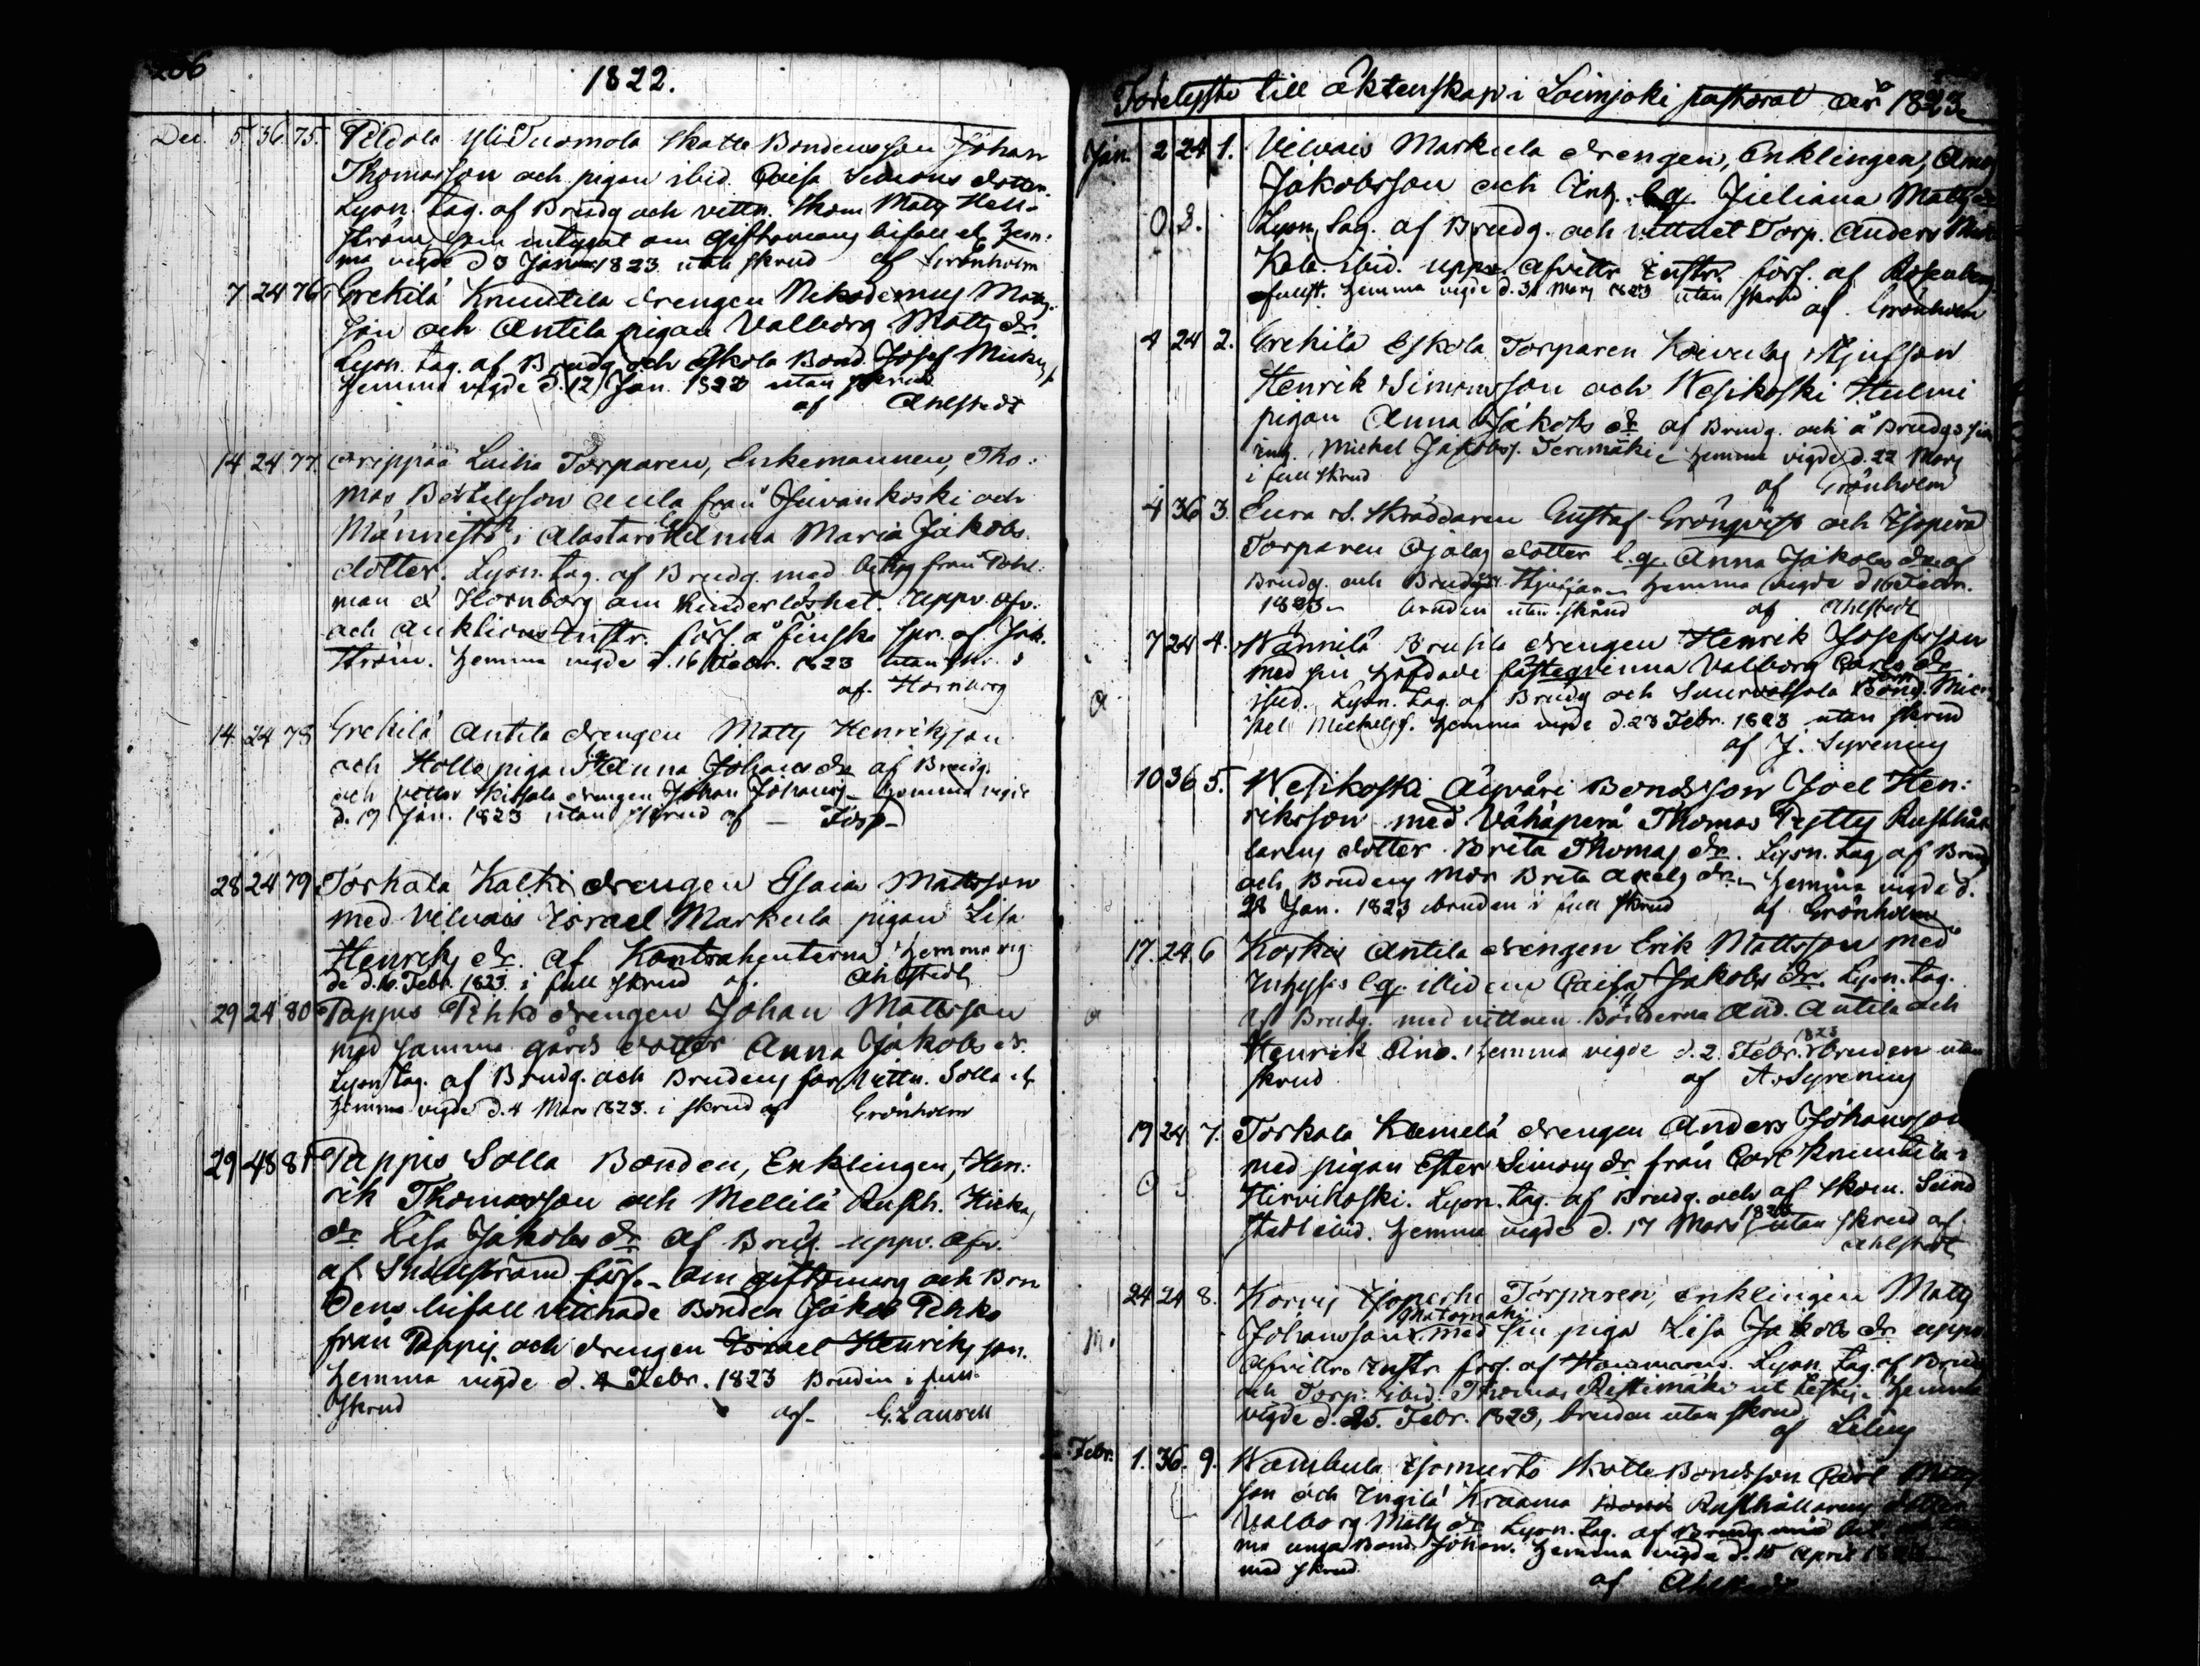 206
1822.
Dec. 5. 36. 75. Peldola Yli Tuomola Skatte Bondensson Johan
Thomasson och pigan ibid. Caisa Simons dotter.
Lysn. tag. af Brudg och vittn. Skom Matts Hell-
ström, som intygat om giftomans bifall et Hem-
ma vigde d 3 Janu. 1823 utan skrud af Grönholm
7 24 76 Grekilä Knuutila drengen Nikodemus Matts-
son och Antila pigan Valborg Matts dr.
Lysn. tag. af Brudg och Eskola Bond. Josef Mickelss.
Hemma vigde d. 12 Jan. 1823 utan skrud
af Ahlstedt
14 24 77. Orippää Laiha Torparen, Enkemannen, Tho-
mas Bertilsson Aula från Juvankoski och
Männistö i Alastaro Anna Maria Jakobs
dotter. Lysn. tag. af Brudg. med betyg från Pohl-
man & Hornborg om hinderlöshet. uppv. afv.
och auktions Instr. förs. å finska spr. af Jak.
Ström. Hemma vigde d. 16 Febr. 1823 utan skr.
af. Hornborg
14 24 78 Grekilä Antila drengen Matts Henriksson
och Hollo pigan Anna Johans dr af Brudg.
och vittn drengen Johan Johanss. Hemma vigde
d. 19 Jan. 1823 utan skrud af – Forsp
28 24 79 Torkala Kalki drengen Esaia Mattsson
med Vilvais Israel Markula pigan Lisa
Henriks dr. af Kontrahenterna Hemma vig-
de d. 16. Febr. 1823 i full skrud af. Ahlstedt
29 24 80 Pappis Pehko drengen Johan Mattsson
med samma gårds dotter Anna Jakobs dr.
Lysn. tag. af Brudg. och Brudens far Vittn. Solla
Hemma vigde d. 4 Mars 1823. i skrud af Grönholm
29 48 81 Pappis Solla Bonden, Enklingen, Hen-
rik Thomasson och Mellilä Rusth. Kirka,
dr Lisa Jakobs dr. af Brudg. uppv. afv.
af Snällström förs. – Om giftomans och Bru-
dens bifall vittnade Bonden Jakob Pehko
från Pappis och drengen Israel Henriksson.
Hemma vigde d. 4 Febr. 1823 Bruden i full
skrud af – G. Laurell
Förelyste till äktenskap i Loimjoki pastorat år 1823
Jan. 2 24 1. Vilvais Markula drengen, Enklingen,
Jakobsson och Inh. lg. Juliana Matts
O. S. Lysn. tag. af Brudg. och vittnet Torp. Anders
ibid. uppv. afvittr Instr. förs. af Rosenberg
Hemma vigde d. 31 Mars 1823 utan skrud
af Grönholm
4 24 2. Grekilä Eskola Torparen Koivulas Styfson
Henrik Simonsson och Vesikoski Hulmi
pigan Anna Jakobs dr af Brudg. och å Brudgs
Michel Jakobss. Terrimäki – Hemma vigde d. 22 Mars
i full skrud af Grönholm
4 36 3. Eura S. Skräddaren Gustaf Grönqvist och Ypäjä
Torparen Ojalas dotter lg. Anna Jakobs dr af
Brudg. och Hemma vigde d 16 Febr.
1823 – bruden utan skrud af Ahlstedt
7 24 4. Wännilä Brusila drengen Henrik Josefsson
med sin häfdade fästeqvinna Valborg Carls dr
ibid. Lysn. tag. af Brudg och Suurvohsala Bond. Mic-
hel Michelss. Hemma vigde d. 23 Febr. 1823 utan skrud
af J. Syrenius
10 36 5. Vesikoski Äyväri Bondsson Joel Hen-
riksson med Vähäperä Thomas Pytty Rusthål-
larens dotter Brita Thomas dr. Lysn. tag af Brudg
och Brudens mor Brita Axels dr. – Hemma vigde d.
28 Jan. 1823 bruden i full skrud af Grönholm
17. 24 6 Koskis Antila drengen Erik Mattsson med
Inhyses lg. ibidem Caisa Jakobs dr. Lysn. tag.
af Brudg. med vittnen Bönderna And. Antila och
Henrik Eino. Hemma vigde d. 2. Febr. 1823 bruden utan
skrud af A. Syrenius
19 24 7. Torkala Kämelä drengen Anders Johansson
O S med pigan Ester Simons dr från Carl Knuutila
Hirvikoski. Lysn. tag. af Brudg. och af Skom. Sund-
stedt ibid. Hemma vigde d. 17 Mars 1823 utan skrud af
Ahlstedt
24 24 8. Korvis Torparen, enklingen Matts
M. Johansson med sin piga Lisa Jakobs dr uppv
Afvittr. Instr förs. af Lysn. tag. af Brudg
och Torp. ibid. Thomas Ristimäki Hemma
vigde d. 25. Febr. 1823, bruden utan skrud
af Lilius
Febr. 1. 36. 9. Wambula Isomurto Skatte Bondsson Carl Matts-
son och Ingilä Kraama Rusthållarens dotter
Valborg Matts dr Lysn. tag. af Brudg
unga Bond. Johan. Hemma vigde d. 15 April 1823
med skrud.
af Ahlstedt